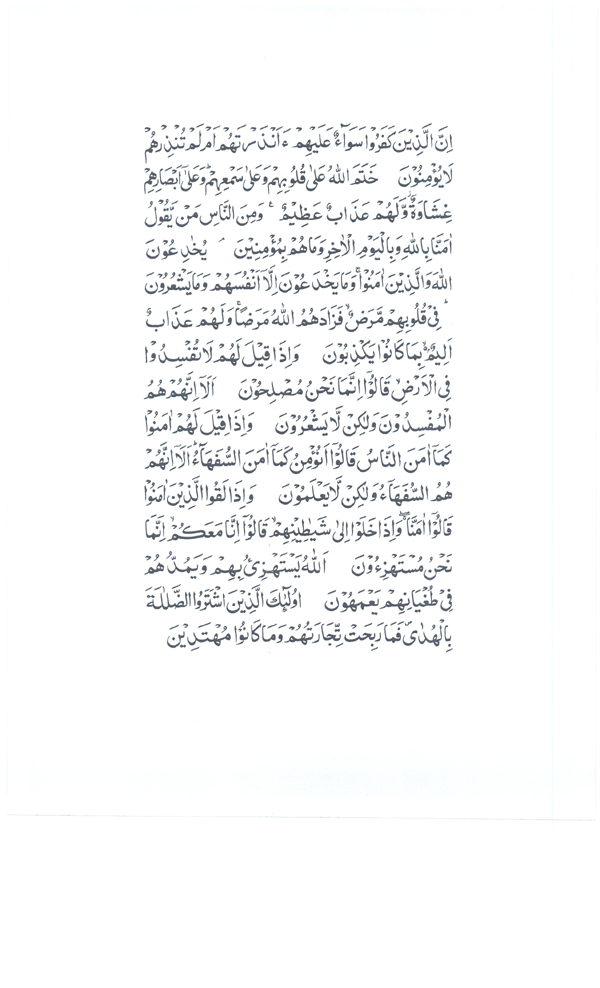 اِنَّ الَّذِيْنَ كَفَرُوْا سَوَآءٌ عَلَيْهِمْ ءَاَنْذَرْتَهُمْ اَمْ لَمْ تُنْذِرْهُمْ
لَا يُؤْمِنُوْنَ خَتَمَ اللّٰهُ عَلٰى قُلُوْبِهِمْ وَعَلٰى سَمْعِهِمْ ؕ وَعَلٰٓى اَبْصَارِهِمْ
غِشَاوَةٌ ؗ وَّلَهُمْ عَذَابٌ عَظِيْمٌ ۧ وَمِنَ النَّاسِ مَنْ يَّقُوْلُ
اٰمَنَّا بِاللّٰهِ وَبِالْيَوْمِ الْاٰخِرِ وَمَا هُمْ بِمُؤْمِنِيْنَ ۘ يُخٰدِعُوْنَ
اللّٰهَ وَالَّذِيْنَ اٰمَنُوْا ۚ وَمَا يَخْدَعُوْنَ اِلَّاۤ اَنْفُسَهُمْ وَمَا يَشْعُرُوْنَ
ؕ فِىْ قُلُوْبِهِمْ مَّرَضٌ ۙ فَزَادَهُمُ اللّٰهُ مَرَضًا ۚ وَلَهُمْ عَذَابٌ
اَلِيْمٌۢ ۙ بِمَا كَانُوْا يَكْذِبُوْنَ وَاِذَا قِيْلَ لَهُمْ لَا تُفْسِدُوْا
فِى الْاَرْضِ ۙ قَالُوْۤا اِنَّمَا نَحْنُ مُصْلِحُوْنَ اَلَاۤ اِنَّهُمْ هُمُ
الْمُفْسِدُوْنَ وَلٰكِنْ لَّا يَشْعُرُوْنَ وَاِذَا قِيْلَ لَهُمْ اٰمِنُوْا
كَمَاۤ اٰمَنَ النَّاسُ قَالُوْۤا اَنُؤْمِنُ كَمَاۤ اٰمَنَ السُّفَهَآءُ ؕ اَلَاۤ اِنَّهُمْ
هُمُ السُّفَهَآءُ وَلٰكِنْ لَّا يَعْلَمُوْنَ وَاِذَا لَقُوا الَّذِيْنَ اٰمَنُوْا
قَالُوْۤا اٰمَنَّا ۖۚ وَاِذَا خَلَوْا اِلٰى شَيٰطِيْنِهِمْ ۙ قَالُوْۤا اِنَّا مَعَكُمْ ۙ اِنَّمَا
نَحْنُ مُسْتَهْزِءُوْنَ اَللّٰهُ يَسْتَهْزِئُ بِهِمْ وَيَمُدُّهُمْ
فِىْ طُغْيَانِهِمْ يَعْمَهُوْنَ اُولٰٓئِكَ الَّذِيْنَ اشْتَرَوُا الضَّلٰلَةَ
بِالْهُدٰى ۪ فَمَا رَبِحَتْ تِّجَارَتُهُمْ وَمَا كَانُوْا مُهْتَدِيْنَ